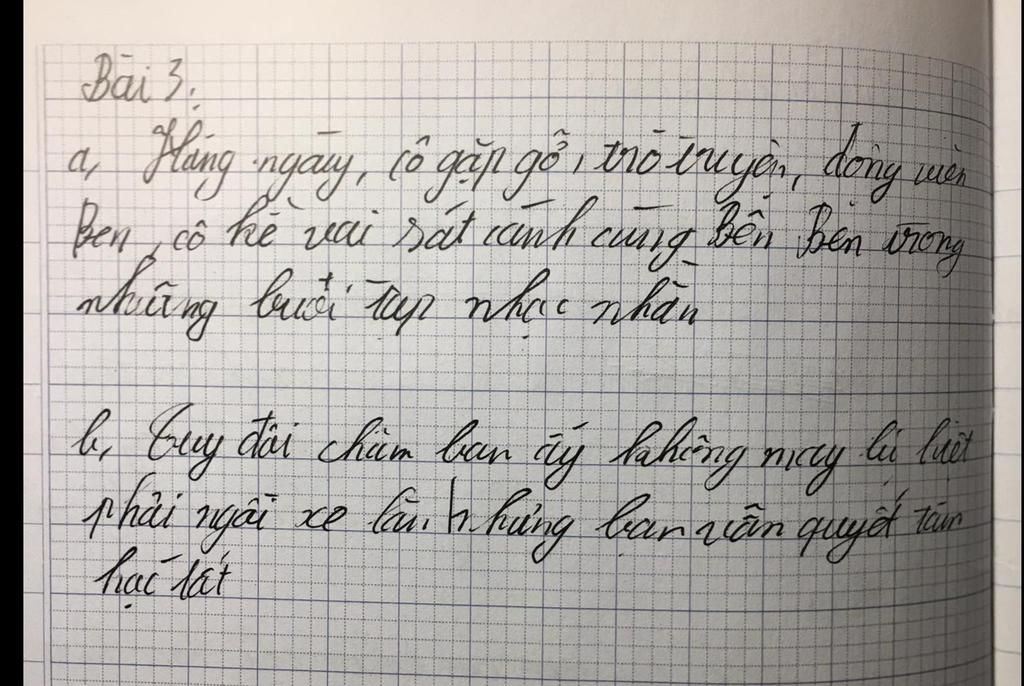 Bài 3.
a, Hằng ngày, cô gặp gỡ, trò truyện, động viên
Ben, cô kề vai sát cánh cùng Bên Ben trong
những buổi tập nhạc nhằn
b, Tuy đôi chân bạn ấy không may bị liệt
phải ngồi xe lăn, nhưng bạn vẫn quyết tâm
học tốt